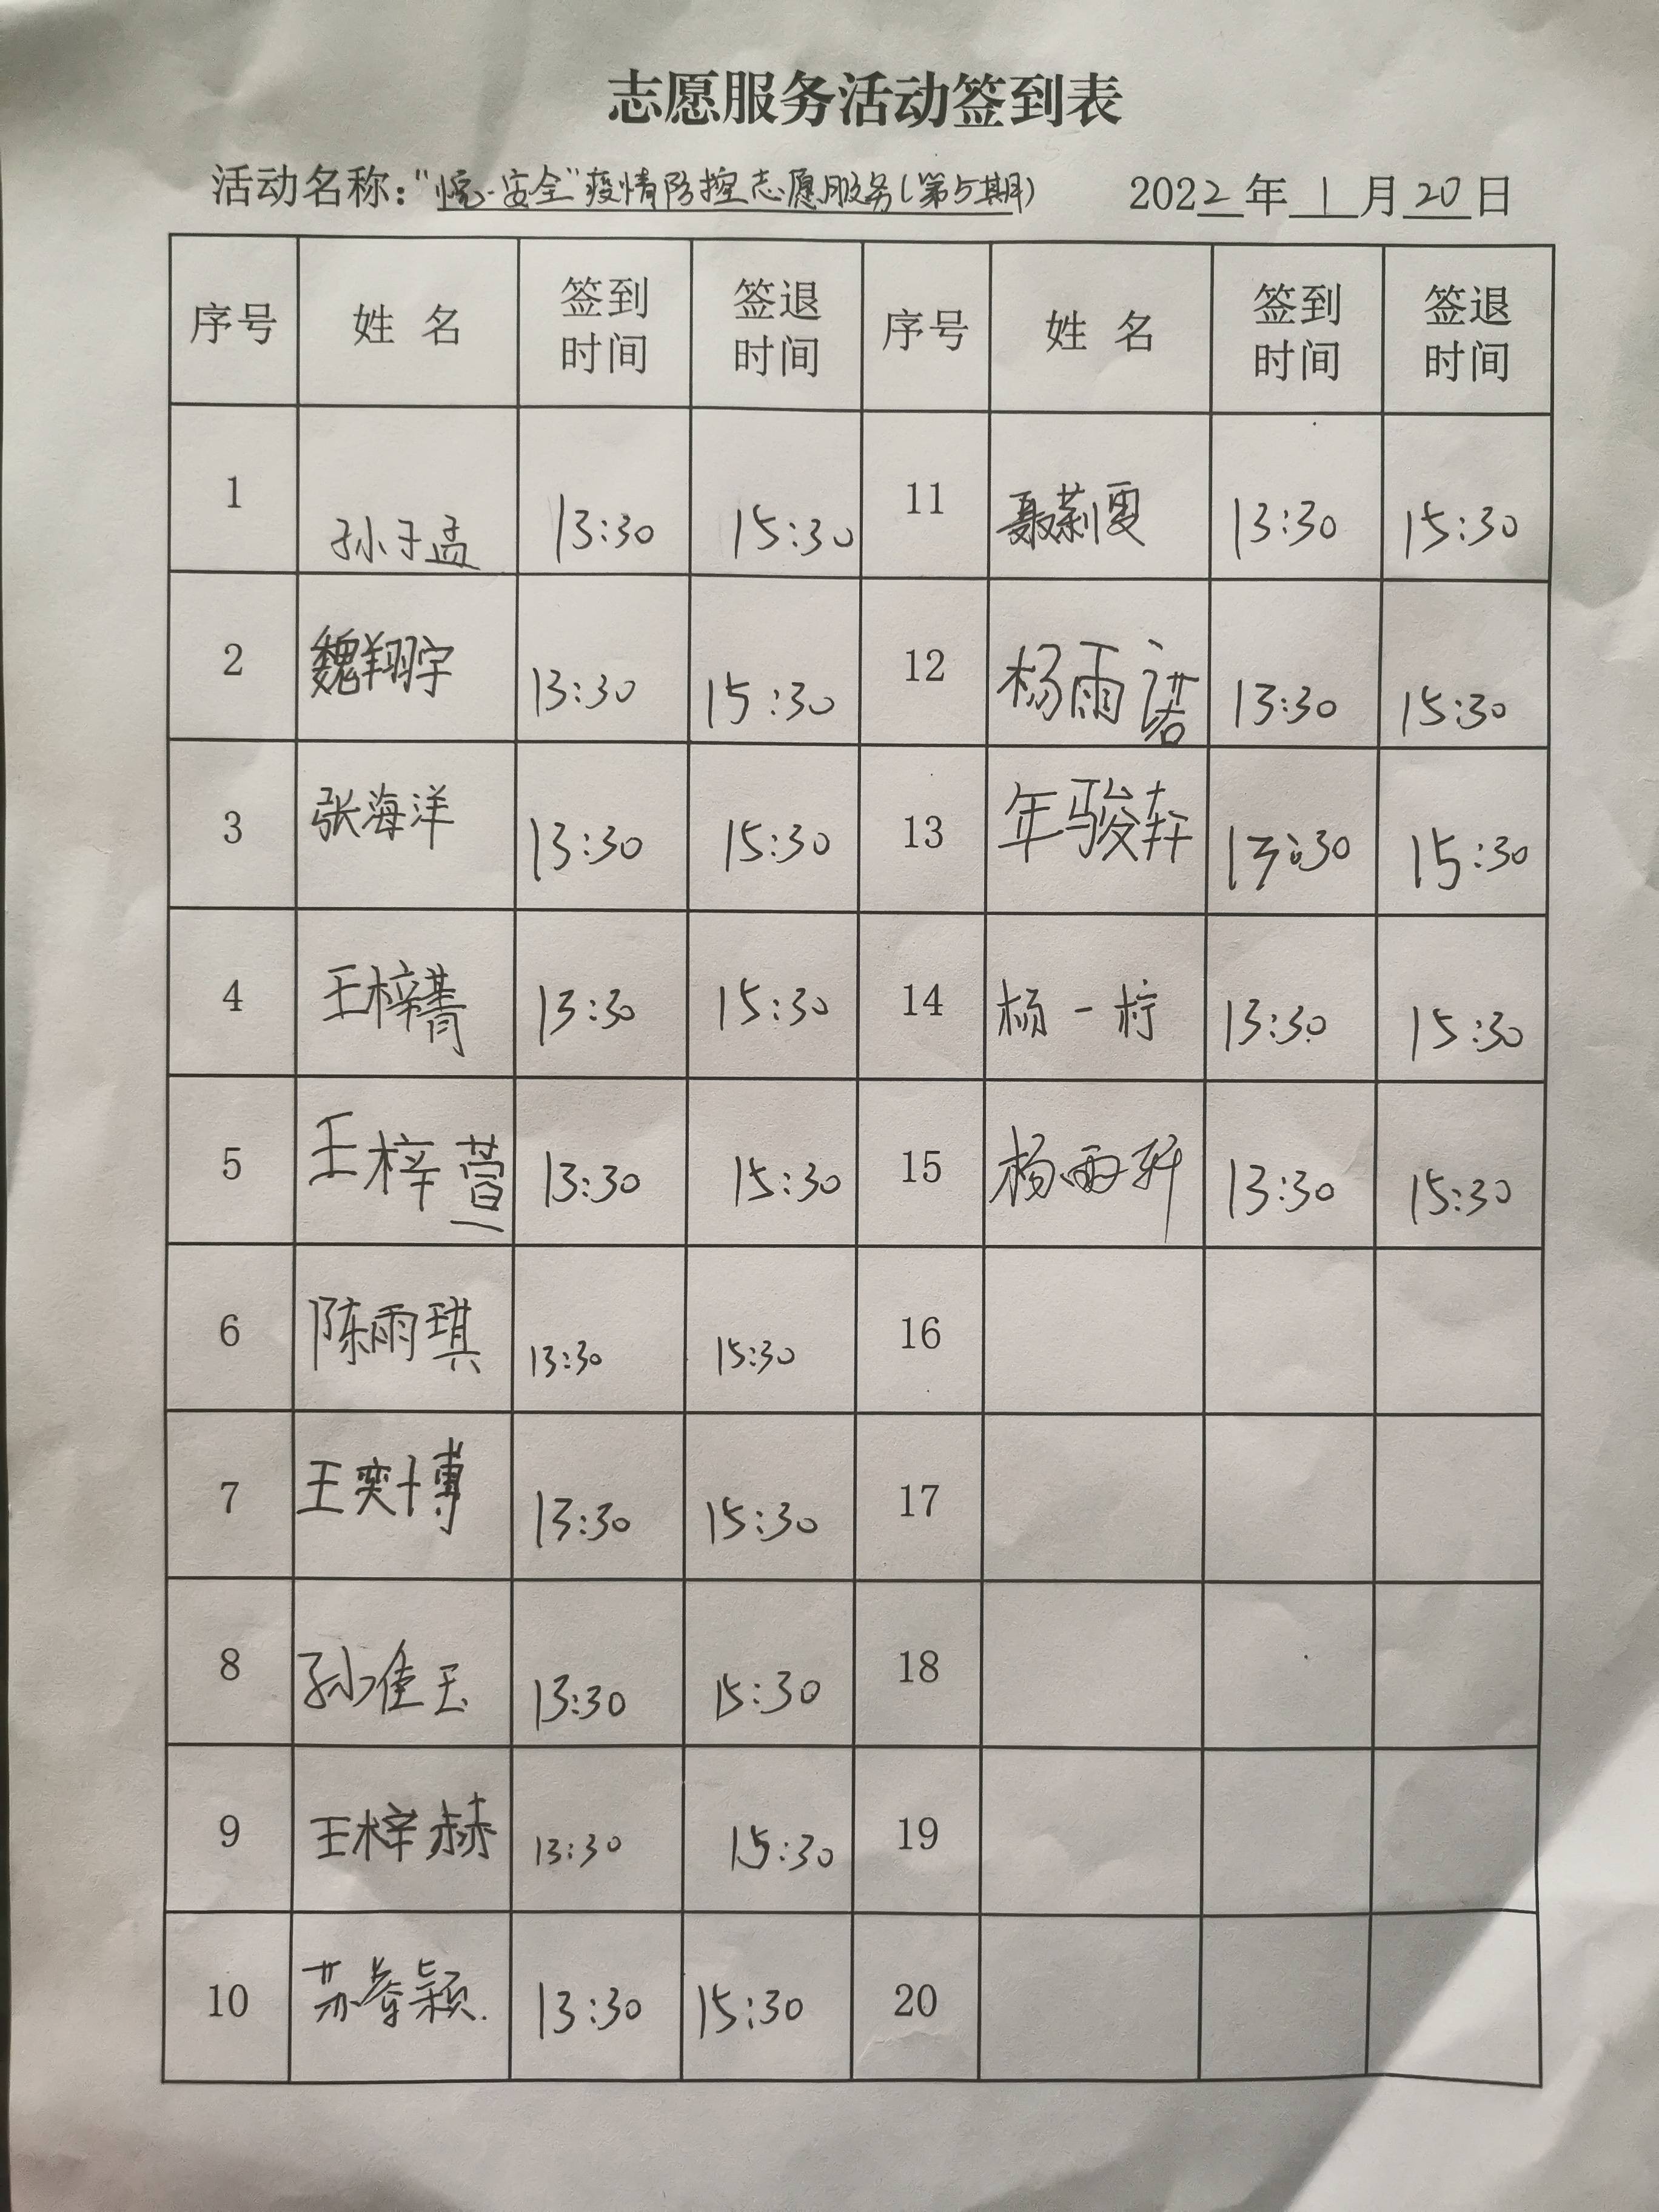 志愿服务活动签到表
活动名称：“悦·安全”疫情防控志愿服务(第5期) 2022年1月20日
序号 姓名 签到时间 签退时间 序号 姓名 签到时间 签退时间
1 孙子孟 13:30 15:30 11 聂莉雯 13:30 15:30
2 魏翔宇 13:30 15:30 12 杨雨诺 13:30 15:30
3 张海洋 13:30 15:30 13 年骏轩 13:30 15:30
4 王梓菁 13:30 15:30 14 杨一柠 13:30 15:30
5 王梓萱 13:30 15:30 15 杨雨轩 13:30 15:30
6 陈雨琪 13:30 15:30 16
7 王奕博 13:30 15:30 17
8 孙佳玉 13:30 15:30 18
9 王梓赫 13:30 15:30 19
10 13:30 15:30 20